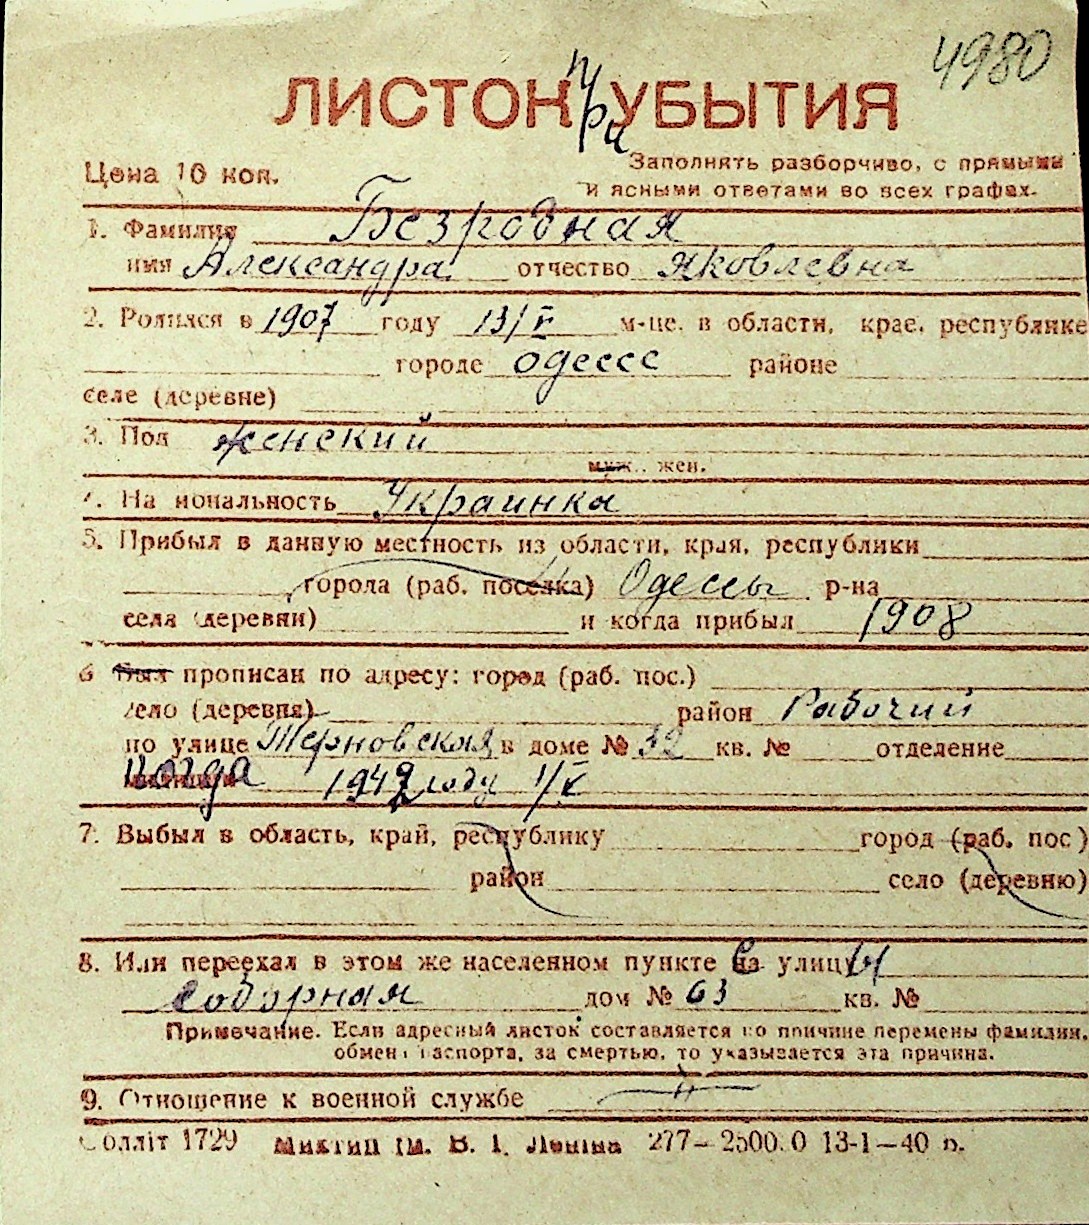 4980
ЛИСТОК при УБЫТИЯ
Цена 10 коп.
Заполнять разборчиво, с прямыми
и ясными ответами во всех графах.
1. Фамилия Безродная
имя Александра отчество Яковлевна
2. Родился в 1907 году 13/V м-це. в области, крае, республике
городе Одессе районе
селе (деревне)
3. Пол женский
муж. жен.
4. Национальность Украинка
5. Прибыл в данную местность из области, края, республики
города (раб. поселка) Одессы р-на
села (деревни) и когда прибыл 1908
6 Был прописан по адресу: город (раб. пос.)
село (деревня) район Рабочий
по улице Терновская в доме № 32 кв. № отделение
когда 1942 году 1/V
7. Выбыл в область, край, республику город (раб. пос)
район село (деревню)
8. Или переехал в этом же населенном пункте с улицы
Соборная дом № 63 кв. №
Примечание. Если адресный листок составляется по причине перемены фамилии,
обмена паспорта, за смертью, то указывается эта причина.
9. Отношение к военной службе
Солліт 1729 Миктип ім. В. І. Леніна 277—2500.0 13-1—40 р.